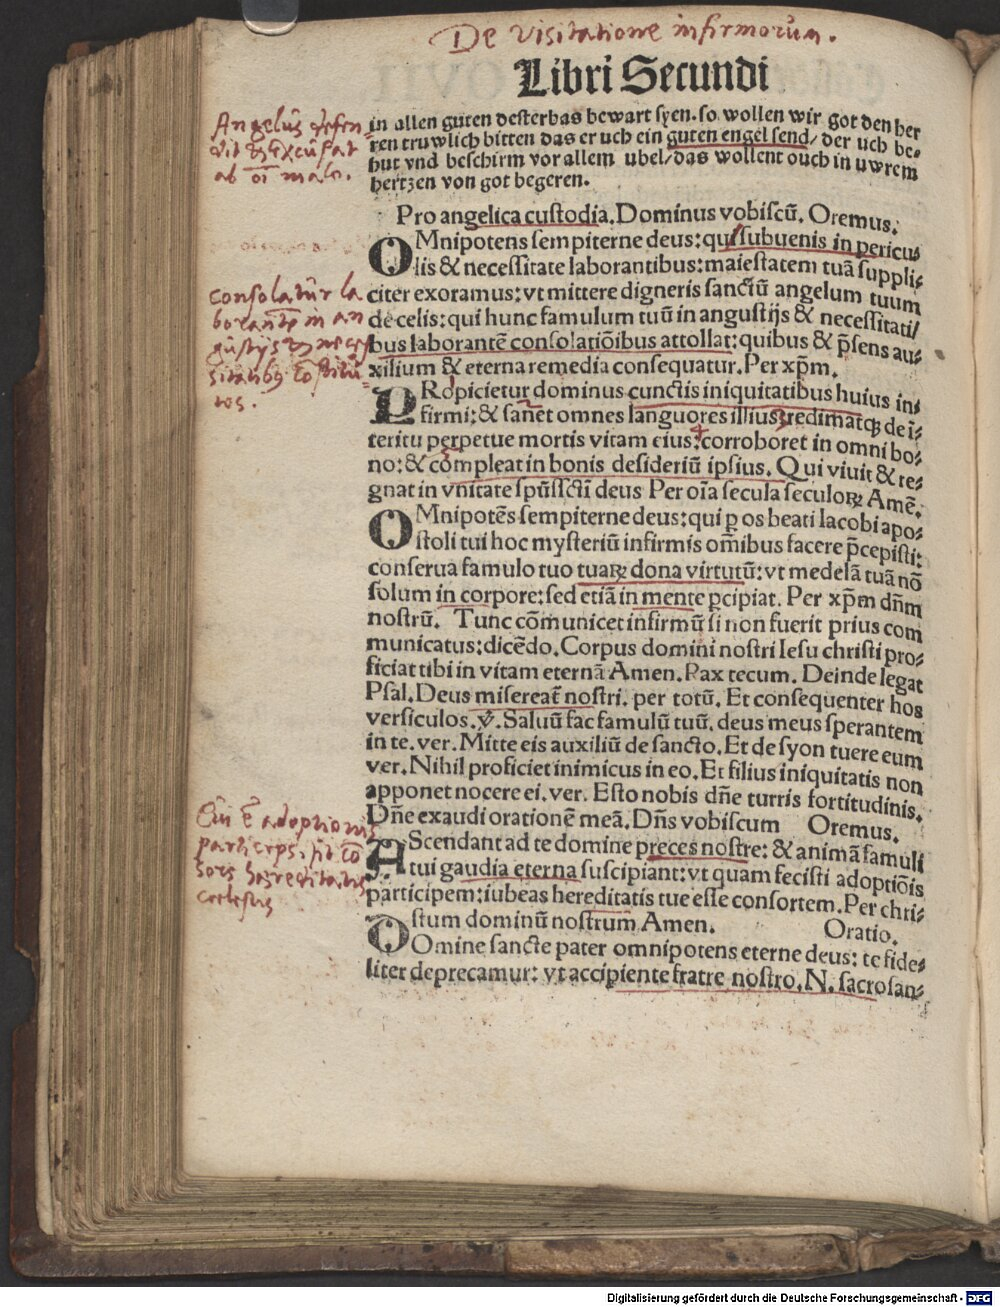 De visitatione infirmorum.
Libri Secundi
in allen guten desterbas bewart syen. so wollen wir got den her
ren truwlich bitten das er uch ein guten engel send/ der uch be⸗
hut vnd beschirm vor allem ubel/ das wollent ouch in uwrem
hertzen von got begeren.
Angelus defen
dit & excusat
ab oī malo.
Pro angelica custodia. Dominus vobiscū. Oremus.
OMnipotens sempiterne deus: qui subuenis in pericu⸗
lis & necessitate laborantibus: maiestatem tuā suppli⸗
citer exoramus: vt mittere digneris sanctū angelum tuum
de celis: qui hunc famulum tuū in angustijs & necessitati⸗
bus laborantē consolatiōibus attollat: quibus & p̄sens au⸗
xilium & eterna remedia consequatur. Per xp̄m.
consolatur la
borantē in an
gustijs & neces
sitatibus cōstitu
tos.
PRopicietur dominus cunctis iniquitatibus huius in⸗
firmi: & sanet omnes languores illius: redimatqꝫ de ī⸗
teritu perpetue mortis vitam eius: corroboret in omni bo⸗
no: & compleat in bonis desideriū ipsius. Qui viuit & re⸗
gnat in vnitate spūssctī deus Per oīa secula seculoꝝ Amē.
OMnipotēs sempiterne deus: qui ꝑ os beati Iacobi apo⸗
stoli tui hoc mysteriū infirmis om̄ibus facere p̄cepisti:
conserua famulo tuo tuaꝝ dona virtutū: vt medelā tuā nō
solum in corpore: sed etiā in mente ꝑcipiat. Per xp̄m dn̄m
nostrū. Tunc cōmunicet infirmū si non fuerit prius com
municatus: dicēdo. Corpus domini nostri Iesu christi pro⸗
ficiat tibi in vitam eternā Amen. Pax tecum. Deinde legat
Psal. Deus misereat̄ nostri. per totū. Et consequenter hos
versiculos. ℣. Saluū fac famulū tuū. deus meus sperantem
in te. ver. Mitte eis auxiliū de sancto. Et de syon tuere eum
ver. Nihil proficiet inimicus in eo. Et filius iniquitatis non
apponet nocere ei. ver. Esto nobis dn̄e turris fortitudinis.
Dn̄e exaudi orationē meā. Dn̄s vobiscum Oremus.
AScendant ad te domine preces nostre: & animā famuli
tui gaudia eterna suscipiant: vt quam fecisti adoptiōis
participem: iubeas hereditatis tue esse consortem. Per chri⸗
stum dominū nostrum Amen. Oratio.
adoptionis
particeps, sit cō
sors haereditatis
coelestis
DOmine sancte pater omnipotens eterne deus: te fide⸗
liter deprecamur: vt accipiente fratre nostro. N. sacrosan⸗
Digitalisierung gefördert durch die Deutsche Forschungsgemeinschaft - DFG